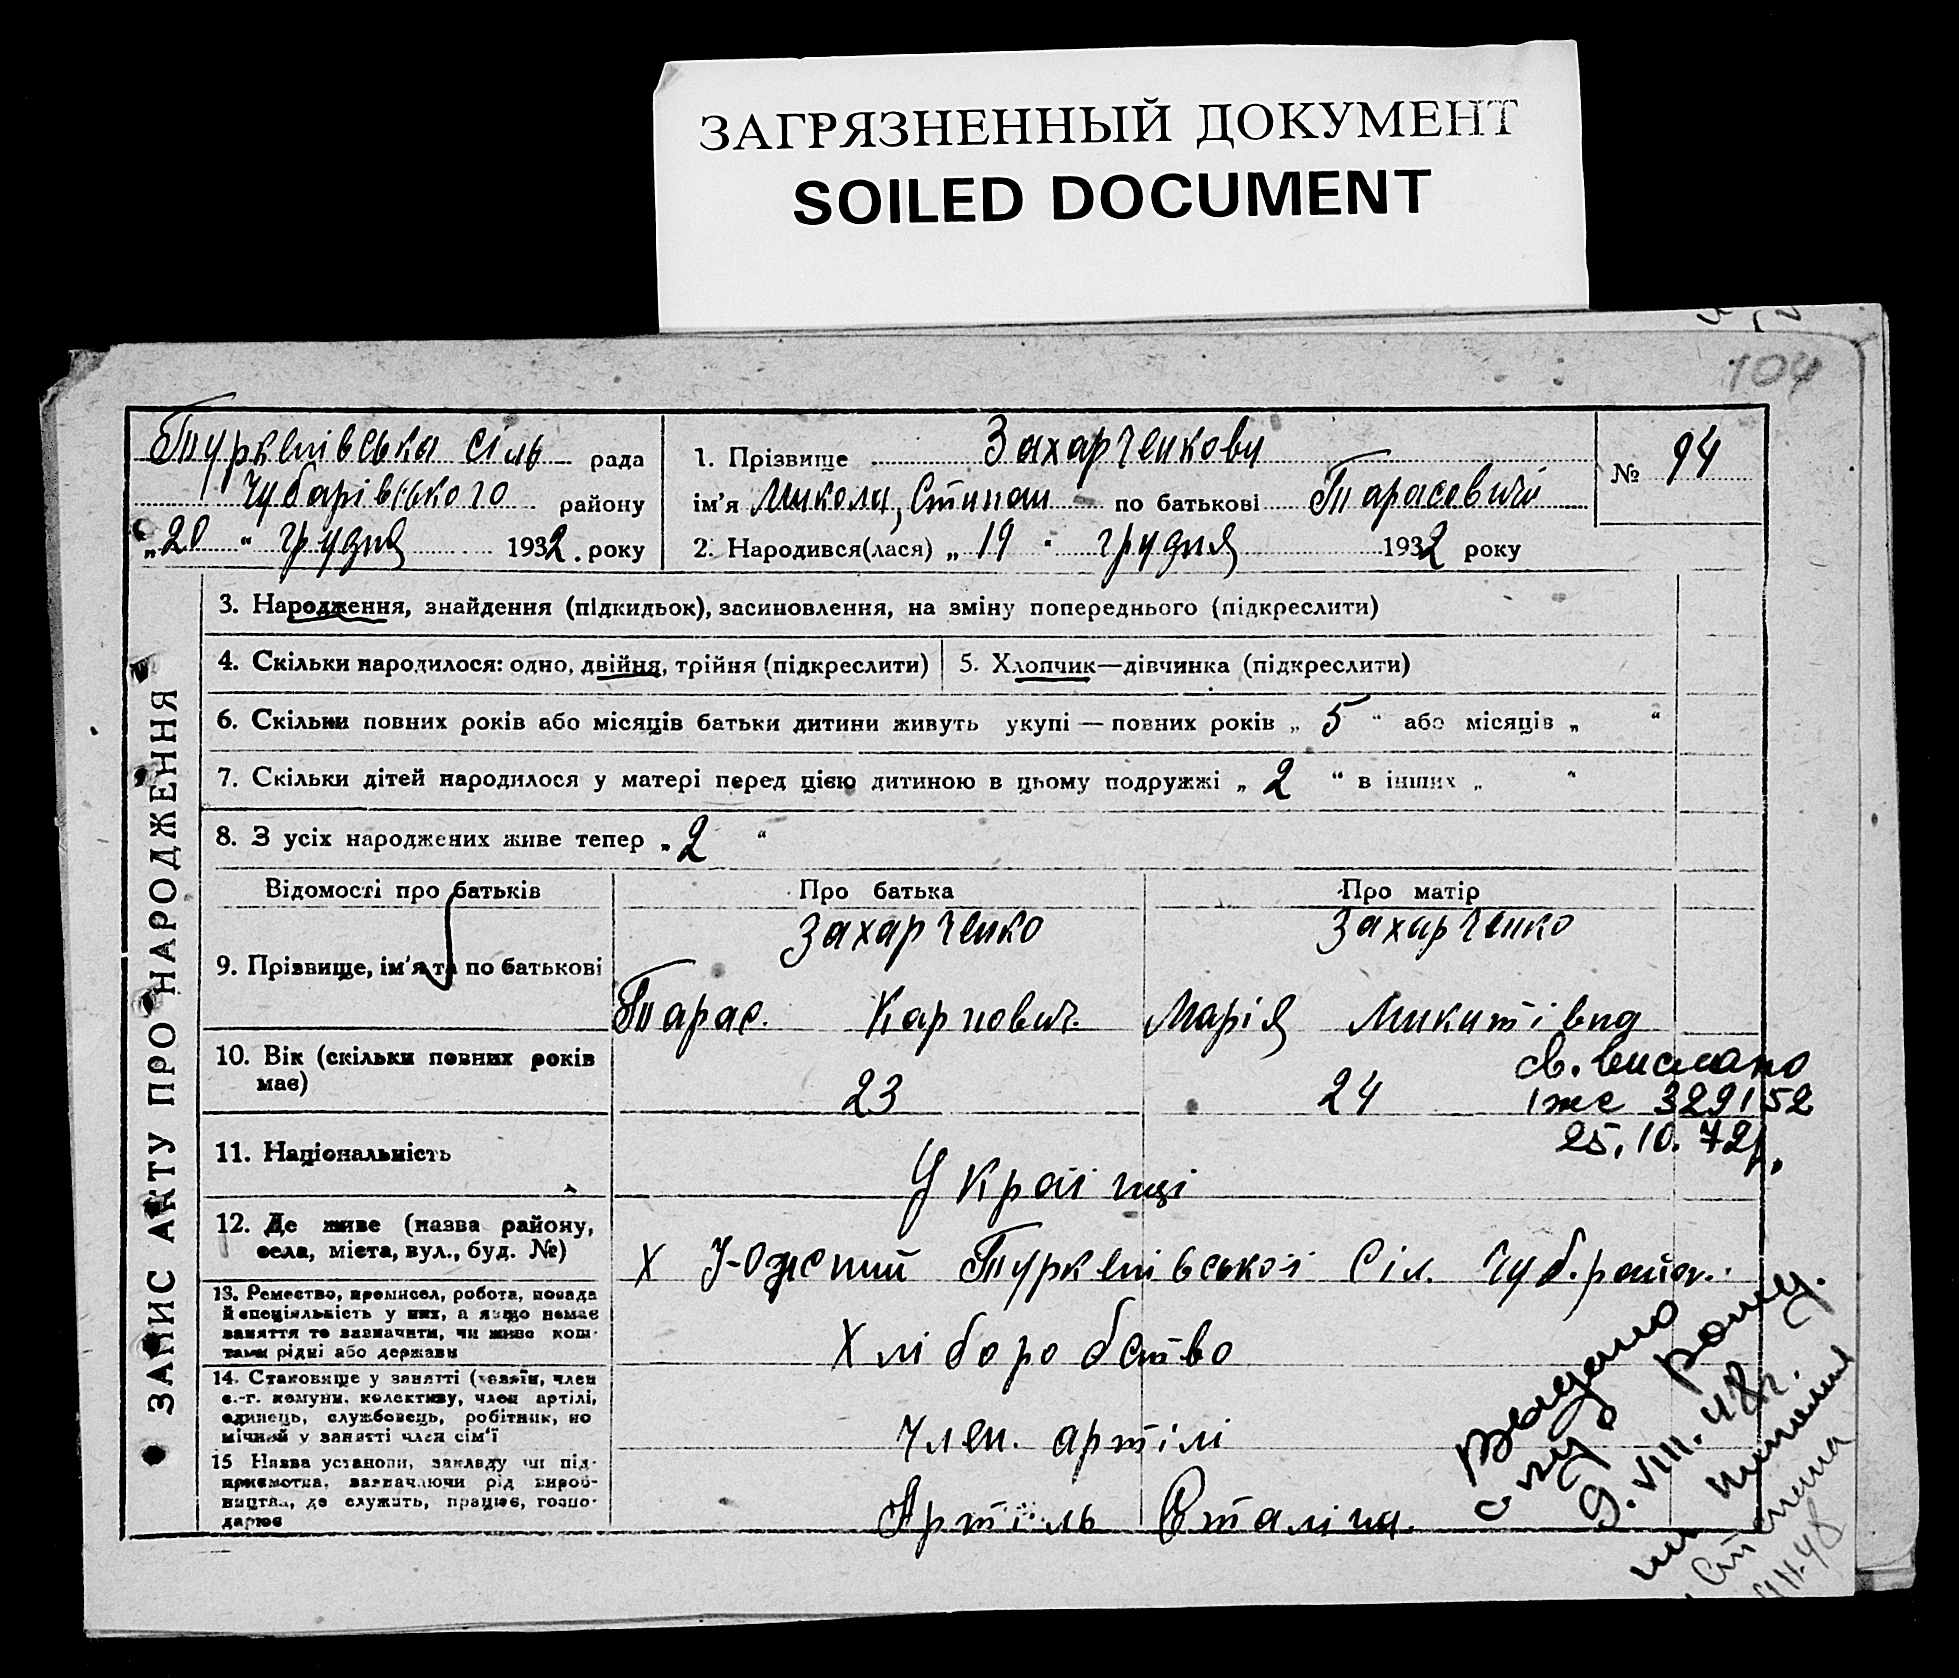 ЗАГРЯЗНЕННЫЙ ДОКУМЕНТ
SOILED DOCUMENT
104
Туркенівська сіль рада
Чубарівського району
„20 “ грудня 1932. року
1. Прізвище Захарченкови
ім'я Микола, Стипан по батькові Тарасовичи
2. Народився(лася) „ 19 “ грудня 1932 року
№ 94
ЗАПИС АКТУ ПРО НАРОДЖЕННЯ
3. Народження, знайдення (підкидьок), засиновлення, на зміну попереднього (підкреслити)
4. Скільки народилося: одно, двійня, трійня (підкреслити)
5. Хлопчик—дівчинка (підкреслити)
6. Скільки повних років або місяців батьки дитини живуть укупі — повних років „ 5 “ або місяців „ “
7. Скільки дітей народилося у матері перед цією дитиною в цьому подружжі „ 2 “ в інших „ “
8. З усіх народжених живе тепер „ 2 “
Відомості про батьків
Про батька
Про матір
9. Прізвище, ім'я та по батькові
Захарченко
Тарас. Карпович.
Захарченко
Марія Микитівна
10. Вік (скільки повних років має)
23
24
св. выслано
1же 329152
25.10.72г.
11. Національність
Українці
12. Де живе (назва району,
села, міста, вул., буд. №)
Х Туркенівської Сіл. Чуб. район.
13. Ремество, промисел, робота, посада
й спеціяльність у них, а якщо немає
заняття то зазначити, чи живе кош-
тами рідні або держави
Хліборобство
14. Становище у занятті (хазяїн, член
с.-г. комуни, колективу, член артілі,
одинець, службовець, робітник, по
мічний у занятті член сім'ї
Член. артілі
15 Назва установи, закладу чи під-
приємства, зазначаючи рід вироб-
ництва, де служить, працює, госпо-
дарює
Артіль Сталіна.
Выдано
9.VIII.48г.